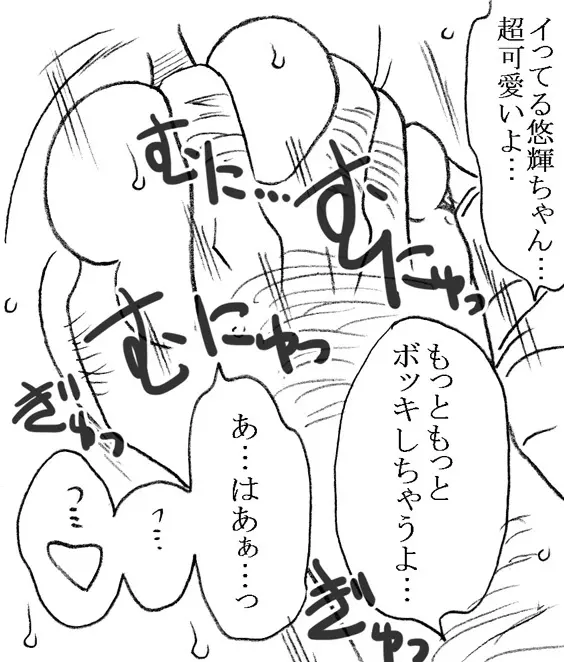 イってる悠輝ちゃん…
超可愛いよ…
むに…
むにゅっ
むにゅっ
ぎゅっ
もっともっと
ボッキしちゃうよ…
あ…はあぁ…っ
…
っ…
ぎゅっ